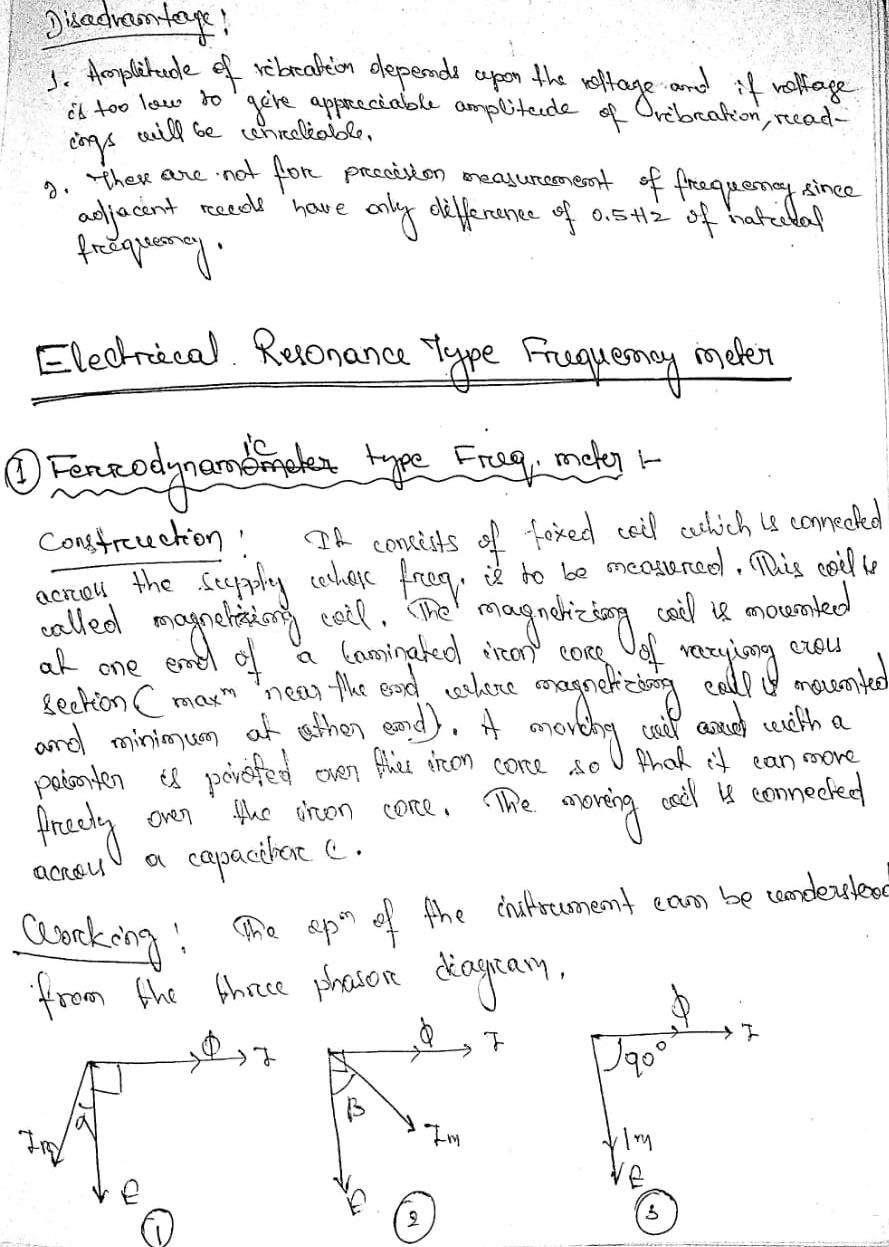 Disadvantage :
1. Amplitude of vibration depends upon the voltage and if voltage
is too low to give appreciable amplitude of vibration, read-
ings will be unreliable.
2. These are not for precision measurement of frequency since
adjacent reeds have only difference of 0.5Hz of natural
frequency.
Electrical Resonance Type Frequency meter
① Ferrodynamic type Freq. meter :-
Construction : It consists of fixed coil which is connected
across the supply whose freq. is to be measured. This coil is
called magnetizing coil. The magnetizing coil is mounted
at one end of a laminated iron core of varying cross
section ( maxm near the end where magnetizing coil is mounted
and minimum at other end). A moving coil with a
pointer is pivoted over this iron core so that it can move
freely over the iron core. The moving coil is connected
across a capacitor C.
Working : The opn of the instrument can be understood
from the three phasor diagram.
Φ I Φ I Φ I
90°
α β
Im Im Im
E E E
① ② ③